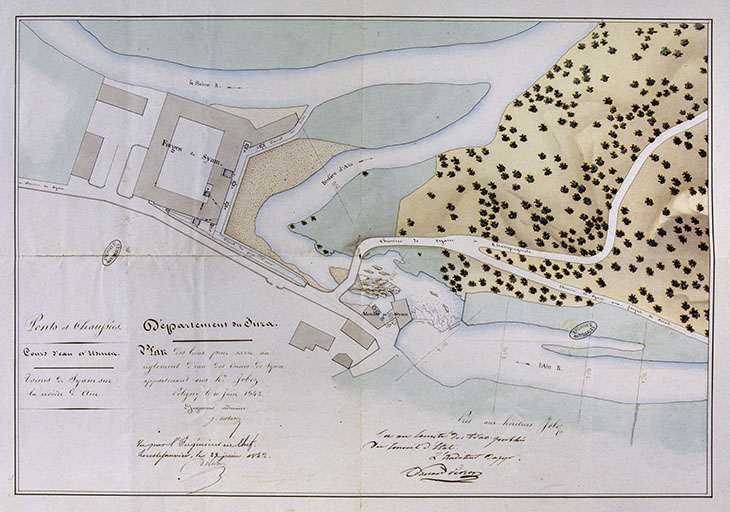 la Saine R.
Forges de Syam.
Canal
Rivière d'Ain
Chemin de Syam à Champagnole
Chemin de Syam
Moulin de Syam
l'Ain R.
Ponts et Chaussées
Cours d'eau et Usines
Usines de Syam sur
la rivière d'Ain
Département du Jura.
Plan des lieux pour servir au
règlement d'eau des Usines de Syam
appartenant aux hrs Jobez
Poligny le 10 juin 1842
Vu par l'Ingénieur en Chef
Lons-le-Saunier, le 23 juin 1842
Prés aux héritiers Jobez
Vu au Comité des travaux publics
du Conseil d'Etat